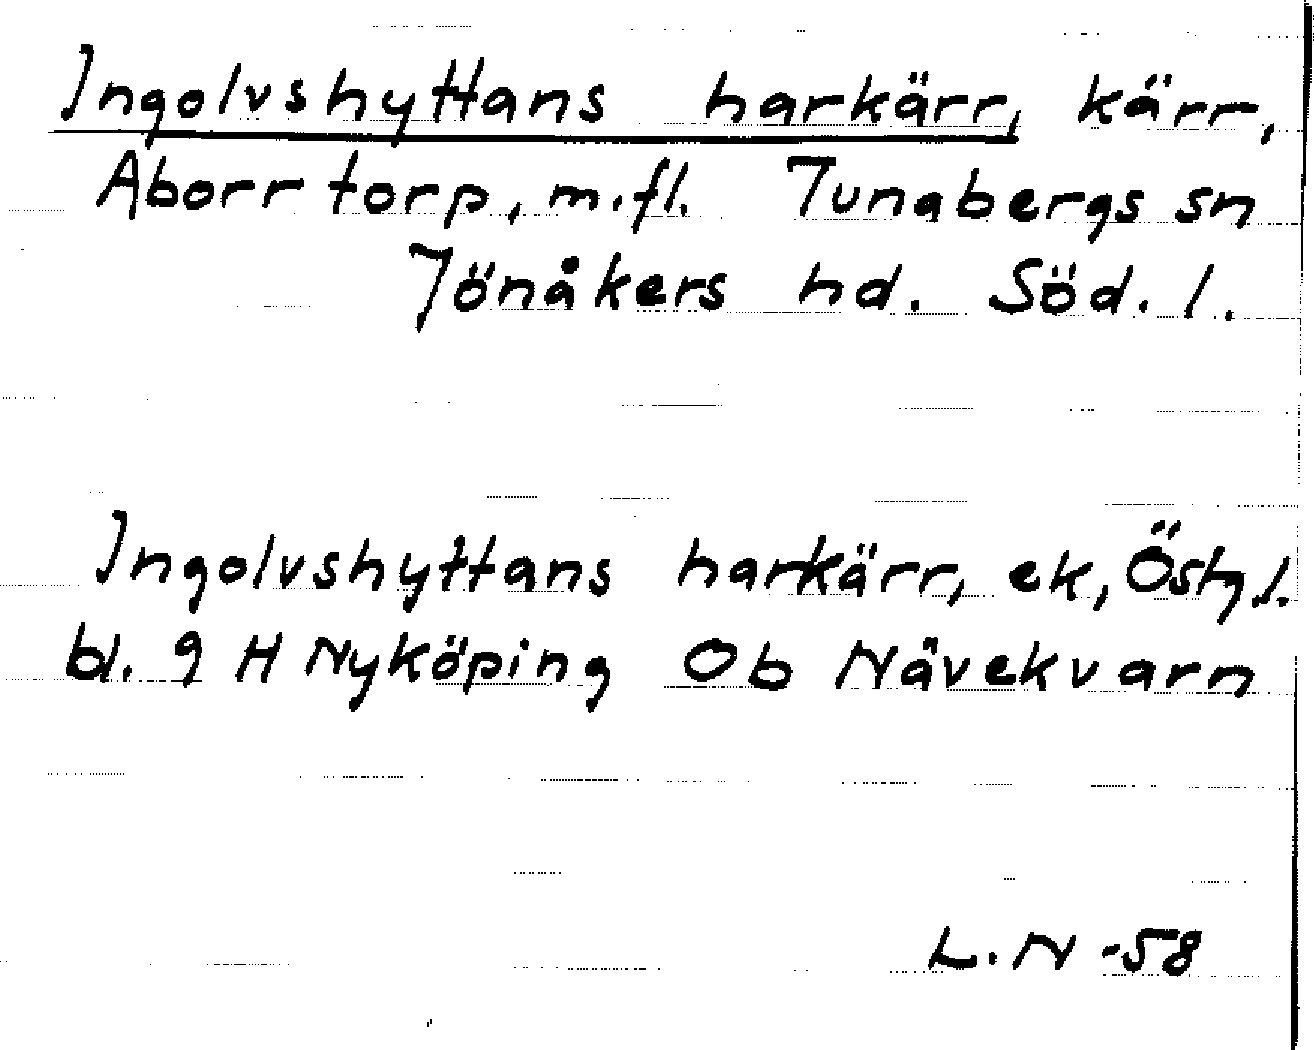 Ingolvshyttans harkärr, kärr,
Aborrtorp, m.fl. Tunabergs sn
Jönåkers hd. Söd. l.
Ingolvshyttans harkärr, ek, Östg l.
bl. 9 H Nyköping Ob Nävekvarn
L. N -58